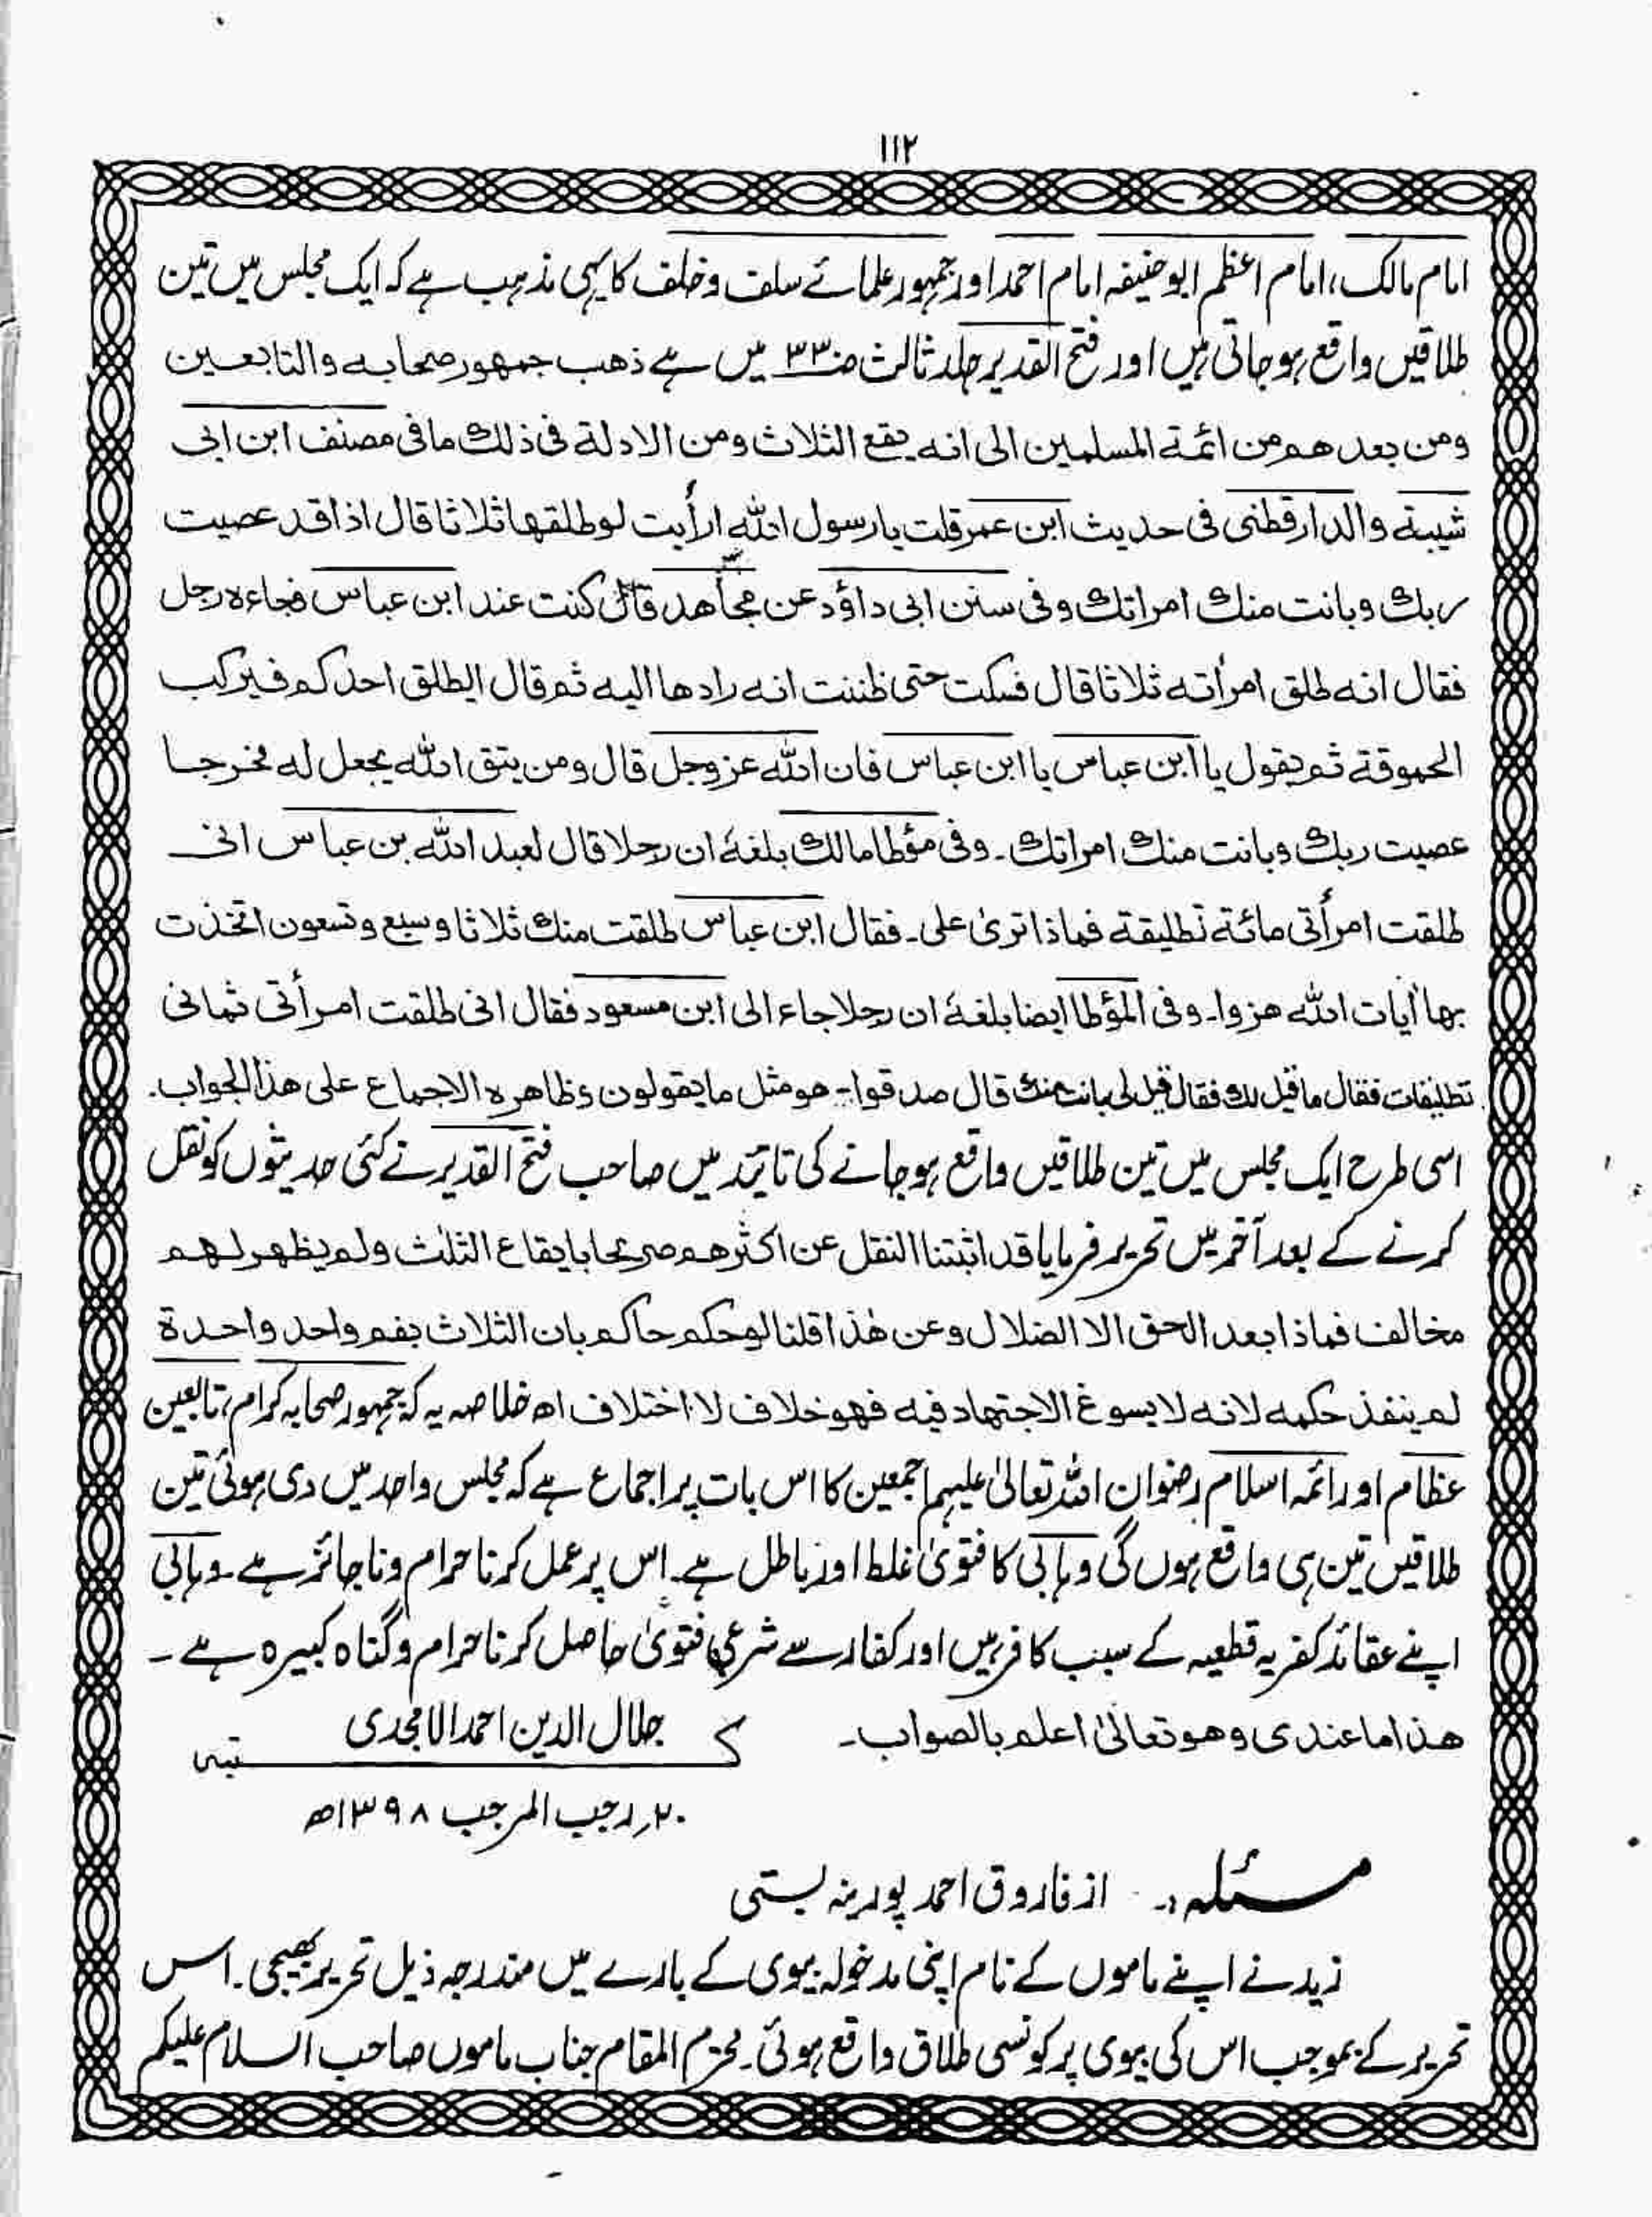 ۱۱۲
امام مالک، امام اعظم ابوحنیفہ امام احمد اور جمہور علمائے سلف و خلف کا یہی مذہب ہے کہ ایک مجلس میں تین
طلاقیں واقع ہوجاتی ہیں اور فتح القدیر جلد ثالث ص۳۳۰ میں ہے ذھب جمھور صحابہ والتابعین
ومن بعدھم من ائمة المسلمین الی انہ یقع الثلاث ومن الادلة فی ذلك ما فی مصنف ابن ابی
شیبة والدارقطنی فی حدیث ابن عمر قلت یا رسول اللہ ارأیت لو طلقھا ثلاثا قال اذا قد عصیت
ربك وبانت منك امراتك وفی سنن ابی داؤد عن مجاھد قال کنت عند ابن عباس فجاءہ رجل
فقال انہ طلق امرأتہ ثلاثا قال فسکت حتی ظننت انہ رادھا الیہ ثم قال ایطلق احدکم فیرکب
الحموقة ثم یقول یا ابن عباس یا ابن عباس فان اللہ عزوجل قال ومن یتق اللہ یجعل لہ مخرجا
عصیت ربك وبانت منك امراتك۔ وفی مؤطا مالك بلغہٗ ان رجلا قال لعبد اللہ بن عباس انی
طلقت امرأتی مائة تطلیقة فماذا تریٰ علی۔ فقال ابن عباس طلقت منك ثلاثا وسبع وتسعون اتخذت
بھا اٰیات اللہ ھزوا۔ وفی المؤطا ایضا بلغہٗ ان رجلا جاء الی ابن مسعود فقال انی طلقت امرأتی ثمانی
تطلیقات فقال ما قیل لك فقال قیل لی بانت منك قال صدقوا۔ ھو مثل ما یقولون وظاھرہ الاجماع علی ھذا الجواب.
اسی طرح ایک مجلس میں تین طلاقیں واقع ہوجانے کی تائید میں صاحب فتح القدیر نے کئی حدیثوں کو نقل
کرنے کے بعد آخر میں تحریر فرمایا قد اثبتنا النقل عن اکثرھم صریحا بایقاع الثلٰث ولم یظھر لھم
مخالف فماذا بعد الحق الا الضلال وعن ھٰذا قلنا لو حکم حاکم بان الثلاث بفم واحد واحدة
لم ینفذ حکمہ لانہ لا یسوغ الاجتھاد فیہ فھو خلاف لا اختلاف اھ خلاصہ یہ کہ جمہور صحابہ کرام، تابعین
عظام اور ائمہ اسلام رضوان اللہ تعالیٰ علیہم اجمعین کا اس بات پر اجماع ہے کہ مجلس واحد میں دی ہوئی تین
طلاقیں تین ہی واقع ہوں گی وہابی کا فتویٰ غلط اور باطل ہے۔ اس پر عمل کرنا حرام و ناجائز ہے۔ وہابی
اپنے عقائد کفریہ قطعیہ کے سبب کافر ہیں اور کفار سے شرعی فتویٰ حاصل کرنا حرام و گناہ کبیرہ ہے۔
ھذا ما عندی وھو تعالیٰ اعلم بالصواب۔
کتبہ جلال الدین احمد الامجدی
۲۰؍ رجب المرجب ۱۳۹۸ھ
مسئلہ:۔ از فاروق احمد پورینہ بستی
زید نے اپنے ماموں کے نام اپنی مدخولہ بیوی کے بارے میں مندرجہ ذیل تحریر بھیجی۔ اس
تحریر کے بموجب اس کی بیوی پر کونسی طلاق واقع ہوئی۔ محترم المقام جناب ماموں صاحب السلام علیکم